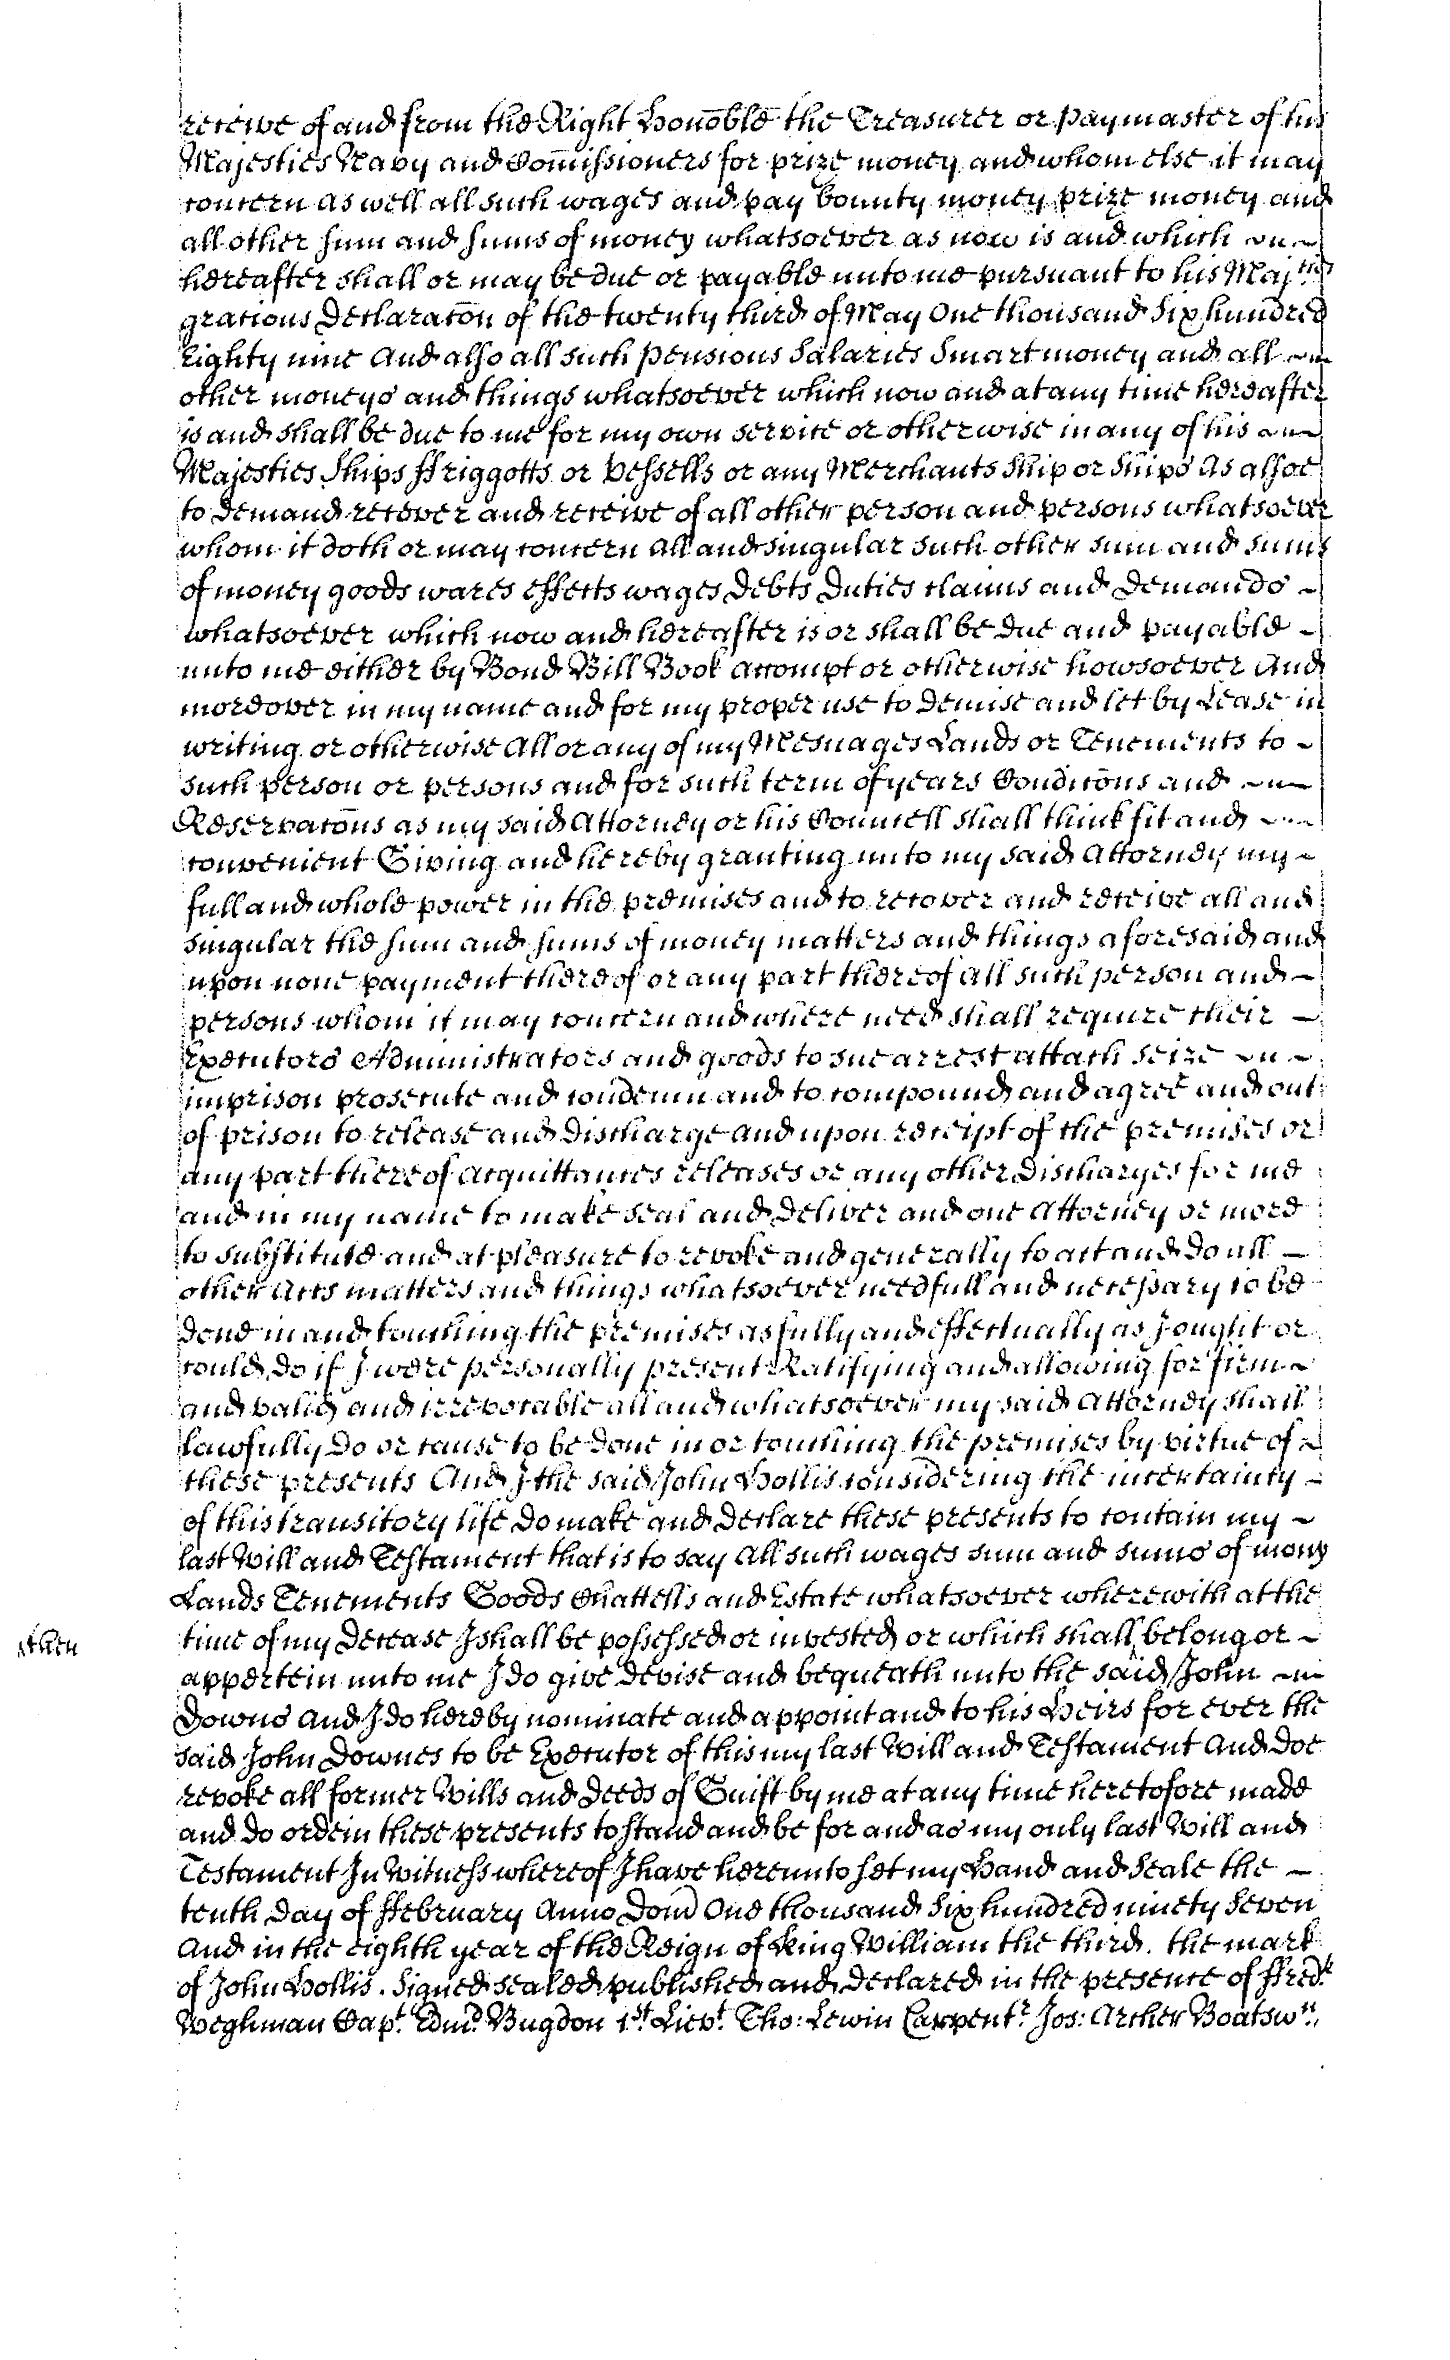 receive of and from the Right Honoble the Treasurer or paymaster of his
Majesties Navy and Comissioners for prize money and whom else it may
concern as well all such wages and pay bounty money prize money and
all other sum and sums of money whatsoever as now is and which
hereafter shall or may be due or payable unto me pursuant to his Majties
gracious Declaracon of the twenty third of May One thousand Six hundred
Eighty nine And also all such pensions Salaries Smart money and all
other moneys and things whatsoever which now and at any time hereafter
is and shall be due to me for my own service or otherwise in any of his
Majesties Ships ffriggotts or Vessells or any Merchants Ship or Ships As alsoe
to demand recover and receive of all other person and persons whatsoever
whom it doth or may concern All and singular such other sum and sums
of money goods wares effects wages Debts Duties claims and Demands
whatsoever which now and hereafter is or shall be due and payable
unto me either by Bond Bill Book Accompt or otherwise howsoever And
moreover in my name and for my proper use to demise and let by Lease in
writing or otherwise All or any of my Mesuages Lands or Tenements to
such person or persons and for such term of years Condicons and
Reservacons as my said Attorney or his Councell shall think fit and
convenient Giving and hereby granting unto my said Attorney my
full and whole power in the premises and to recover and receive all and
singular the sum and sums of money matters and things aforesaid and
upon none payment thereof or any part thereof All such person and
persons whom it may concern and where need shall require their
Executors Administrators and goods to sue arrest attach seize
imprison prosecute and condemn and to compound and agree and out
of prison to release and discharge And upon receipt of the premises or
any part thereof Acquittances releases or any other Discharges for me
and in my name to make seal and deliver and one Attorney or more
to substitute and at pleasure to revoke and generally to act and do all
other Acts matters and things whatsoever needfull and necessary to be
done in and touching the premises as fully and effectually as I ought or
could do if I were personally present Ratifying and allowing for firm
and valid and irrevocable all and whatsoever my said Attorney shall
lawfully do or cause to be done in or touching the premises by virtue of
these presents And I the said John Hollis considering the incertainty
of this transitory life do make and declare these presents to contain my
last Will and Testament that is to say All such wages sum and sums of mony
Lands Tenements Goods Chattells and Estate whatsoever wherewith at the
time of my decease I shall be possessed or invested or which shall belong or
then
appertein unto me I do give devise and bequeath unto the said John
Downs And I do hereby nominate and appoint and to his Heirs for ever the
said John Downes to be Executor of this my last Will and Testament And doe
revoke all former Wills and Deeds of Guift by me at any time heretofore made
and do ordein these presents to stand and be for and as my only last Will and
Testament In Witness whereof I have hereunto set my Hand and Seale the
tenth day of ffebruary Anno Dom One thousand Six hundred ninety Seven
And in the eighth year of the Reign of King William the third. the mark
of John Hollis. Signed sealed published and declared in the presence of ffredk
Weghman Capt. Edmd. Bugdon 1st. Lievt. Tho: Lewin Carpentr. Jos: Archer Boatswn.